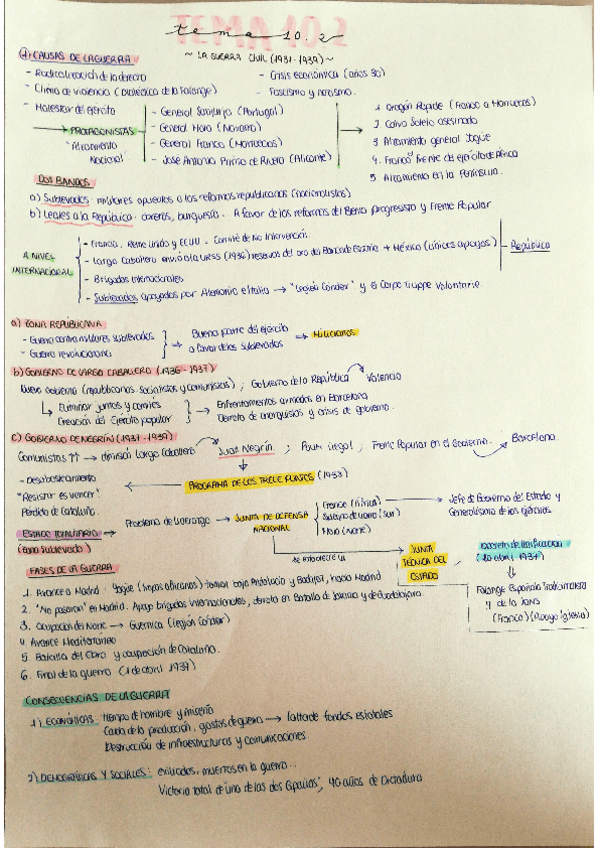 tema 10.2
~ LA GUERRA CIVIL (1931-1939) ~
CAUSAS DE LA GUERRA
- Radicalización de la derecha
- Crisis económica (años 30)
- Clima de violencia (Dialéctica de la Falange)
- Fascismo y nazismo.
- Malestar del ejército
→ PROTAGONISTAS
"Alzamiento Nacional"
- General Sanjurjo (Portugal)
- General Mola (Navarra)
- General Franco (Marruecos)
- José Antonio Primo de Rivera (Alicante)
1. Dragón Rapide (Franco a Marruecos)
2. Calvo Sotelo asesinado
3. Alzamiento general Yagüe
4. Franco al frente de ejército de África
5. Alzamiento en la Península.
DOS BANDOS
a) Sublevados: militares opuestos a las reformas republicanas (nacionalistas)
b) Leales a la República: obreros, burguesía. A favor de las reformas del Bienio progresista y Frente Popular
A NIVEL INTERNACIONAL
- Francia, Reino Unido y EEUU. Comité de No Intervención.
- Largo Caballero envió a la URSS (1936) reservas del oro del Banco de España + México (únicos apoyos)
- Brigadas Internacionales
República
- Sublevados apoyados por Alemania e Italia → "Legión Cóndor" y el Corpo Truppe Volontarie.
a) ZONA REPUBLICANA
- Guerra contra militares sublevados
- Guerra revolucionaria
→ Buena parte del ejército a favor de los sublevados → MILICIANOS
b) GOBIERNO DE LARGO CABALLERO (1936-1937)
Nuevo Gobierno (republicanos, socialistas y comunistas) ; Gobierno de la República Valencia
Eliminar juntas y comités
Creación del Ejército popular
→ Enfrentamientos armados en Barcelona
Derrota de anarquistas y crisis de gobierno.
c) GOBIERNO DE NEGRÍN (1931-1939)
Comunistas ↑↑ → dimisión Largo Caballero
Juan Negrín ; Poum ilegal ; Frente Popular en el Gobierno. Barcelona.
- Desabastecimiento
"Resistir es vencer"
Pérdida de Cataluña.
PROGRAMA DE LOS TRECE PUNTOS (1933)
ESTADO TOTALITARIO
(zona sublevada)
→ Problema de liderazgo → JUNTA DE DEFENSA NACIONAL
Mola (Norte)
→ Jefe de Gobierno del Estado y Generalísimo de los ejércitos
JUNTA TÉCNICA DEL ESTADO
Decreto de Unificación
1937)
Falange Española Tradicionalista y de las Jons
(Franco)
FASES DE LA GUERRA
1. Avance a Madrid. Yagüe (tropas africanas) toman baja Andalucía y Badajoz, hacia Madrid
2. "No pasarán" en Madrid. Apoyo brigadas internacionales, derrota en Batalla de Jarama y de Guadalajara
3. Ocupación del Norte → Guernica (Legión Cóndor)
4. Avance Mediterráneo
5. Batalla del Ebro y ocupación de Cataluña.
6. Final de la guerra (1 de abril 1939)
CONSECUENCIAS DE LA GUERRA
1) ECONÓMICAS: tiempo de hambre y miseria
Caída de la producción, gastos de guerra → falta de fondos estatales
Destrucción de infraestructuras y comunicaciones.
2) DEMOGRÁFICAS Y SOCIALES: exiliados, muertos en la guerra...
Victoria total de una de las dos Españas; 40 años de Dictadura